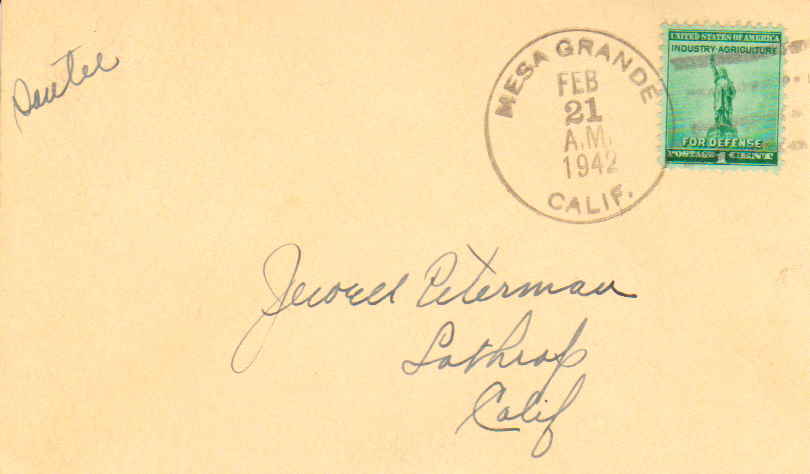 MESA GRANDE
FEB
21
A.M.
1942
CALIF.
UNITED STATES OF AMERICA
INDUSTRY·AGRICULTURE
FOR DEFENSE
POSTAGE 1 CENT
Jewell Peterman
Lathrop
Calif